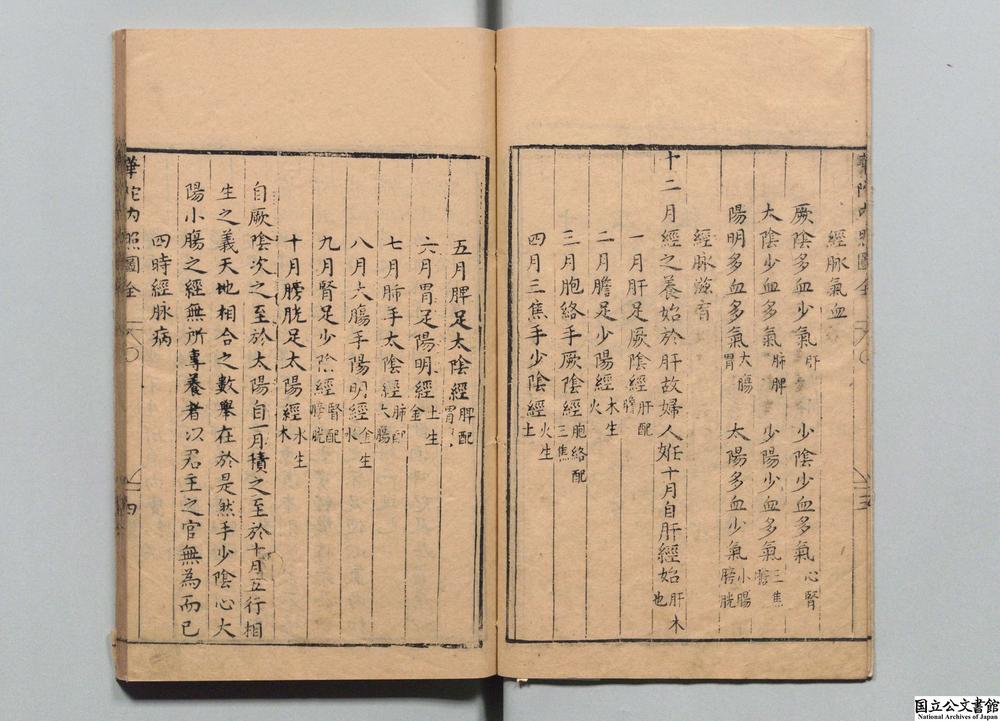 經脉氣血
厥陰多血少氣肝 少陰少血多氣心腎
太陰少血多氣肺脾 少陽少血多氣三焦膽
陽明多血多氣大腸胃 太陽多血少氣小腸膀胱
經脉滋育
十二月經之養始於肝故婦人姙十月自肝經始肝木也
一月肝足厥陰經肝配膽
二月膽足少陽經木生火
三月胞絡手厥陰經胞絡配三焦
四月三焦手少陰經火生土
五月脾足太陰經脾配胃
六月胃足陽明經土生金
七月肺手太陰經肺配大腸
八月大腸手陽明經金生水
九月腎足少陰經腎配膀胱
十月膀胱足太陽經水生木
自厥陰次之至於太陽自一月積之至於十月五行相
生之義天地相合之數舉在於是然手少陰心太
陽小腸之經無所專養者以君主之官無為而已
四時經脉病
華佗內照圖全
四
華佗內照圖全
三
国立公文書館
National Archives of Japan